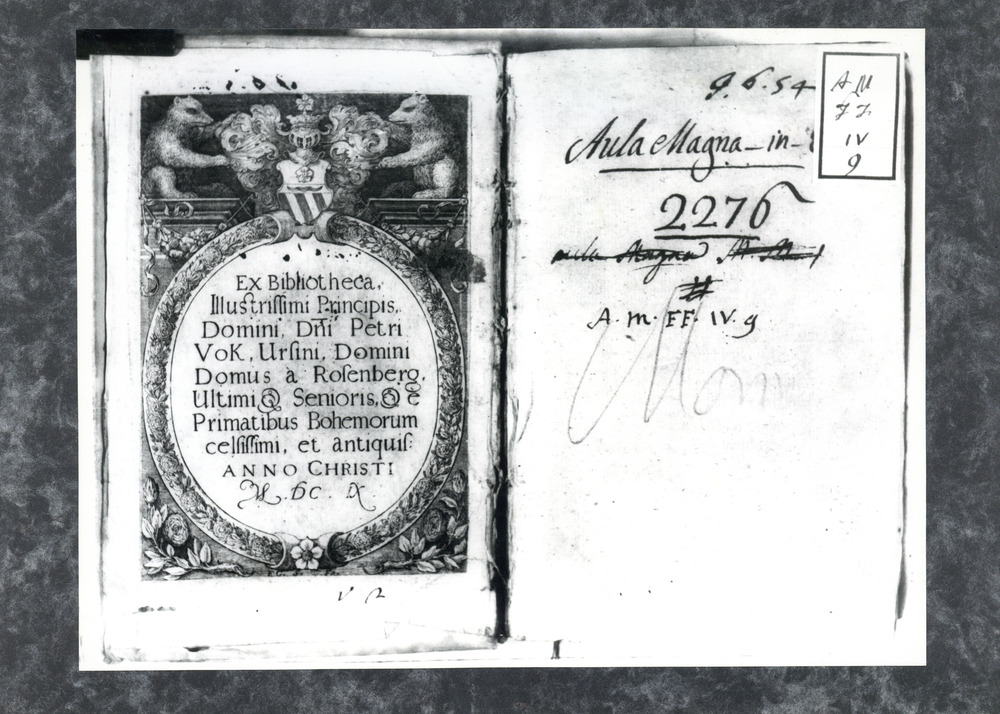 Ex Bibliotheca,
Illustrissimi Principis,
Domini, Dñi Petri
VoK, Ursini, Domini
Domus à Rosenberg,
Ultimi, & Senioris, & è
Primatibus Bohemorum
celsissimi, et antiquis:
ANNO CHRISTI
M. DC. IX
v 2
9.6.54
Aula Magna - in -
2276
aula Magna M. M.
#
A. M. FF. IV. 9
A M
FF
IV
9